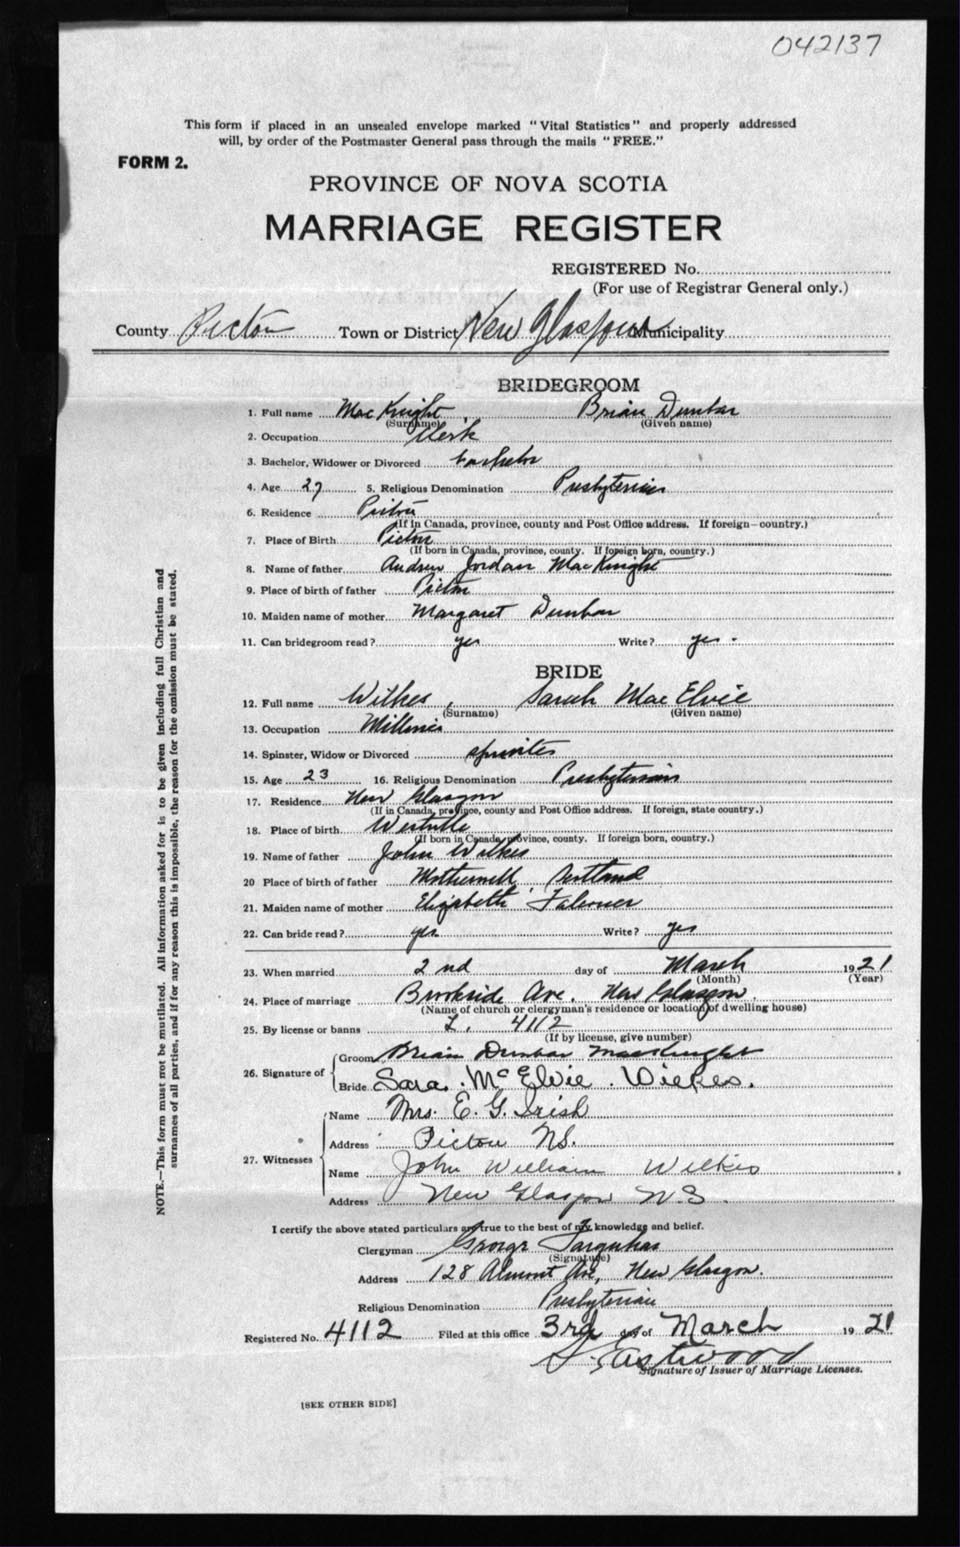 042137
This form if placed in an unsealed envelope marked "Vital Statistics" and properly addressed
will, by order of the Postmaster General pass through the mails "FREE."
FORM 2.
PROVINCE OF NOVA SCOTIA
MARRIAGE REGISTER
REGISTERED No.
(For use of Registrar General only.)
County Pictou Town or District New Glasgow Municipality
BRIDEGROOM
1. Full name MacKnight, Brian Dunbar
(Surname) (Given name)
2. Occupation Clerk
3. Bachelor, Widower or Divorced bachelor
4. Age 27 5. Religious Denomination Presbyterian
6. Residence Pictou
(If in Canada, province, county and Post Office address. If foreign—country.)
7. Place of Birth Pictou
(If born in Canada, province, county. If foreign born, country.)
8. Name of father Andrew Jordan MacKnight
9. Place of birth of father Pictou
10. Maiden name of mother Margaret Dunbar
11. Can bridegroom read? yes Write? yes.
BRIDE
12. Full name Wilkes, Sarah MacElvie
(Surname) (Given name)
13. Occupation Milliner
14. Spinster, Widow or Divorced spinster
15. Age 23 16. Religious Denomination Presbyterian
17. Residence New Glasgow
(If in Canada, province, county and Post Office address. If foreign, state country.)
18. Place of birth Westville
(If born in Canada, province, county. If foreign born, country.)
19. Name of father John Wilkes
20 Place of birth of father Motherwell, Scotland
21. Maiden name of mother Elizabeth Falconer
22. Can bride read? yes Write? yes
23. When married 2nd day of March 1921
(Month) (Year)
24. Place of marriage Brookside Ave. New Glasgow.
(Name of church or clergyman's residence or location of dwelling house)
25. By license or banns L. 4112
(If by license, give number)
26. Signature of
Groom Brian Dunbar MacKnight
Bride Sara. McElvie. Wilkes.
27. Witnesses
Name Mrs. E. G. Irish
Address Pictou N.S.
Name John William Wilkes
Address New Glasgow N.S.
I certify the above stated particulars are true to the best of my knowledge and belief.
Clergyman George Farquhar
(Signature)
Address 128 Almont Ave, New Glasgow.
Religious Denomination Presbyterian
Registered No. 4112 Filed at this office 3rd day of March 1921
Eastwood
Signature of Issuer of Marriage Licenses.
[SEE OTHER SIDE]
NOTE.—This form must not be mutilated. All information asked for is to be given including full Christian and
surnames of all parties, and if for any reason this is impossible, the reason for the omission must be stated.